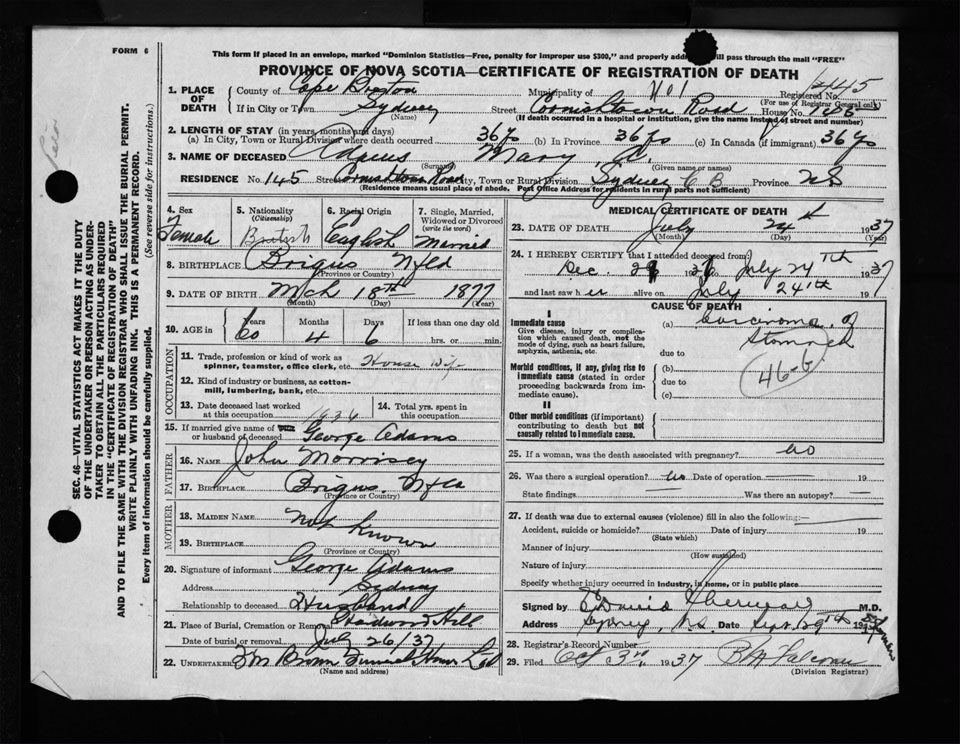 FORM 6
This form if placed in an envelope, marked "Dominion Statistics—Free, penalty for improper use $300," and properly will pass through the mail "FREE"
PROVINCE OF NOVA SCOTIA—CERTIFICATE OF REGISTRATION OF DEATH
1. PLACE OF DEATH County of Cape Breton Municipality of No 1 Registered No.
(For use of Registrar General only)
If in City or Town Sydney Street Cornishtown Road House No.
(Name) (If death occurred in a hospital or institution, give the name instead of street and number)
2. LENGTH OF STAY (in years, months and days)
(a) In City, Town or Rural Division where death occurred 36 ys (b) In Province 36 ys (c) In Canada (if immigrant) 36 ys
3. NAME OF DECEASED Adams Mary
(Surname) (Given name or names)
RESIDENCE No. 145 Street Cornishtown Road City, Town or Rural Division Sydney C B Province N S
(Residence means usual place of abode. Post Office Address for residents in rural parts not sufficient)
4. Sex Female
5. Nationality (Citizenship) British
6. Racial Origin English
7. Single, Married, Widowed or Divorced (write the word) Married
8. BIRTHPLACE Brigus Nfld
(Province or Country)
9. DATE OF BIRTH Mch 18th 1877
(Month) (Day) (Year)
10. AGE in Years Months Days If less than one day old
60 4 6 hrs. or min.
OCCUPATION
11. Trade, profession or kind of work as spinner, teamster, office clerk, etc. House Wife
12. Kind of industry or business, as cotton-mill, lumbering, bank, etc.
13. Date deceased last worked at this occupation 1936
14. Total yrs. spent in this occupation
15. If married give name of wife or husband of deceased George Adams
FATHER
16. NAME John Morrisey
17. BIRTHPLACE Brigus. Nfld
(Province or Country)
MOTHER
18. MAIDEN NAME Not known
19. BIRTHPLACE
(Province or Country)
20. Signature of informant George Adams
Address Sydney
Relationship to deceased Husband
21. Place of Burial, Cremation or Removal Hardwood Hill
Date of burial or removal July 26/37
22. UNDERTAKER Brown Funeral Home Ltd
(Name and address)
MEDICAL CERTIFICATE OF DEATH
23. DATE OF DEATH July 24th 1937
(Month) (Day) (Year)
24. I HEREBY CERTIFY that I attended deceased from:
Dec. 1936 to July 24th 1937
and last saw her alive on July 24th 1937
CAUSE OF DEATH
I
Immediate cause
Give disease, injury or complication which caused death, not the mode of dying, such as heart failure, asphyxia, asthenia, etc.
(a) Carcinoma of Stomach
due to
Morbid conditions, if any, giving rise to immediate cause (stated in order proceeding backwards from immediate cause).
(b)
due to
(c)
46-b
II
Other morbid conditions (if important) contributing to death but not causally related to immediate cause.
25. If a woman, was the death associated with pregnancy? no
26. Was there a surgical operation? no Date of operation 19
State findings Was there an autopsy?
27. If death was due to external causes (violence) fill in also the following:
Accident, suicide or homicide? Date of injury 19
(State which)
Manner of injury
(How sustained)
Nature of injury
Specify whether injury occurred in industry, in home, or in public place
Signed by M.D.
Address Sydney, N.S. Date Sept. 29th 1937
28. Registrar's Record Number
29. Filed Oct 3rd 1937
(Division Registrar)
SEC. 46—VITAL STATISTICS ACT MAKES IT THE DUTY
OF THE UNDERTAKER OR PERSON ACTING AS UNDERTAKER
TO OBTAIN ALL THE PARTICULARS REQUIRED
IN THE "CERTIFICATE OF REGISTRATION OF DEATH"
AND TO FILE THE SAME WITH THE DIVISION REGISTRAR WHO SHALL ISSUE THE BURIAL PERMIT.
WRITE PLAINLY WITH UNFADING INK. THIS IS A PERMANENT RECORD.
Every item of information should be carefully supplied. (See reverse side for instructions.)